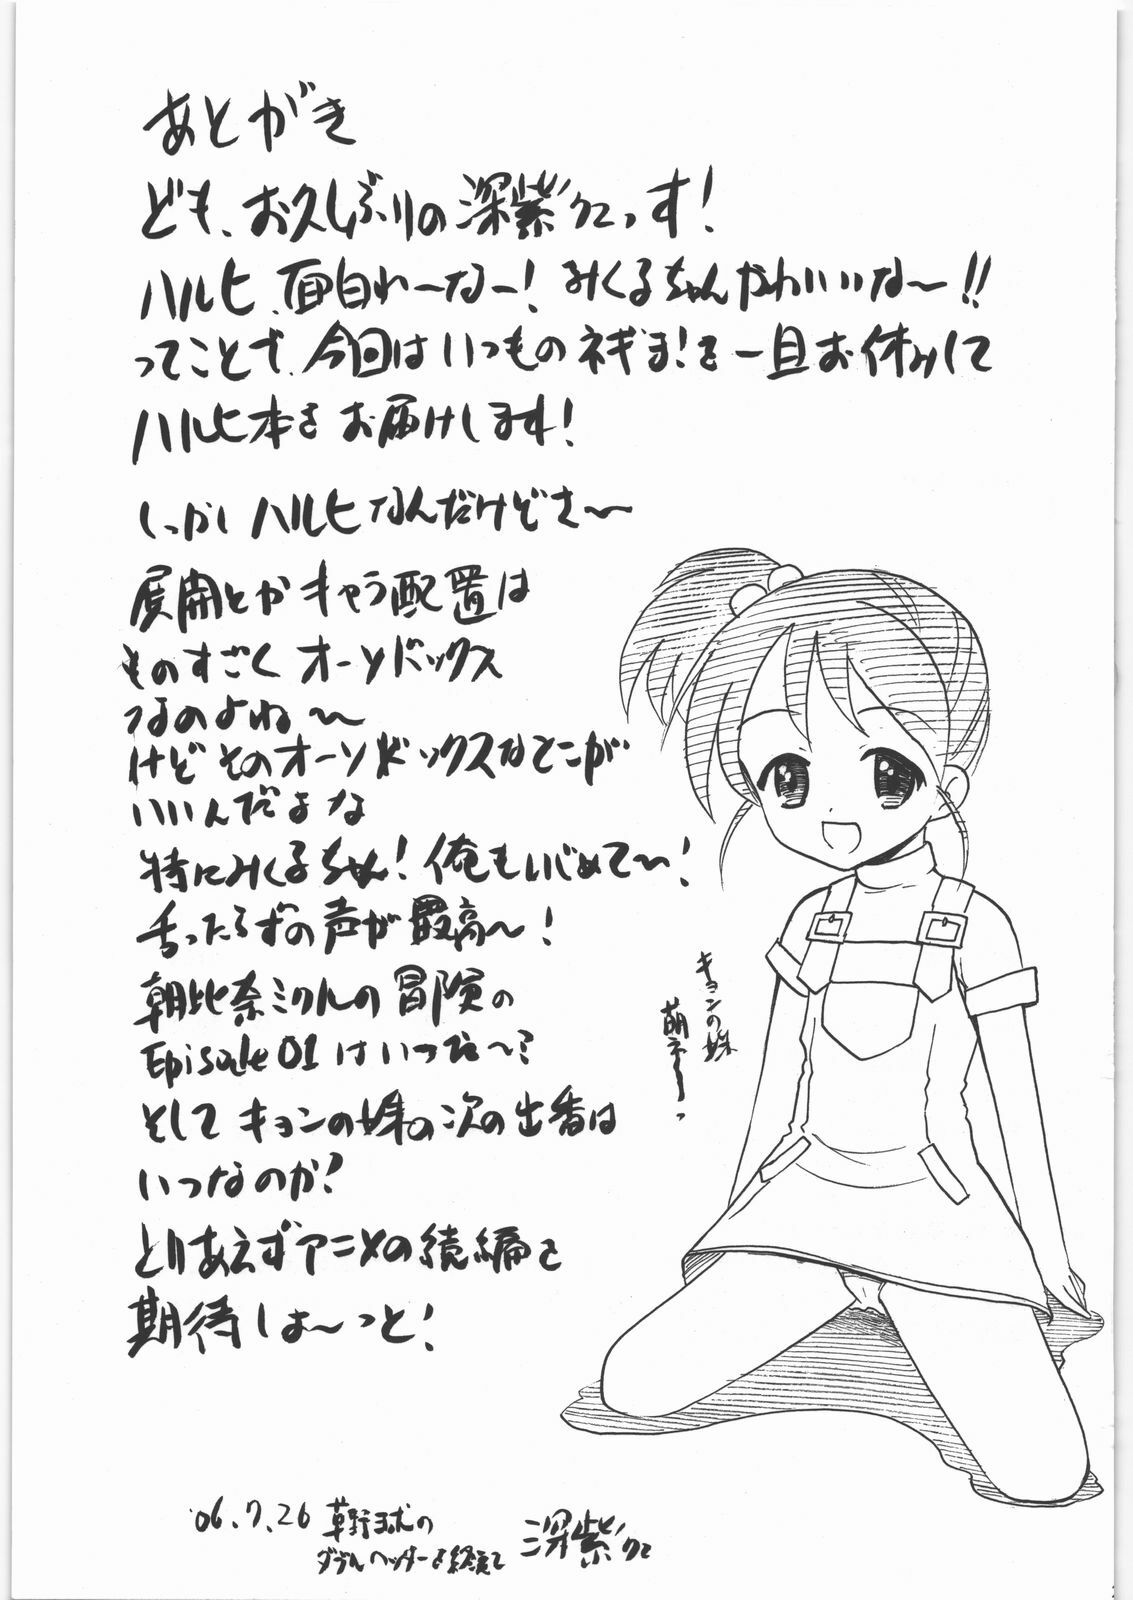 あとがき
ども、お久しぶりの深紫です!
ハルヒ、面白れーなー!みくるちゃんかわいいな〜!!
ってことで、今回はいつものネギま!を一旦お休みして
ハルヒ本をお届けします!
しっかしハルヒなんだけどさ〜
展開とかキャラ配置は
ものすごくオーソドックス
なのよね〜
けどそのオーソドックスなとこが
いいんだよな
特にみくるちゃん!俺もいじめて〜!
舌ったらずの声が最高〜!
朝比奈ミクルの冒険の
Episode 01はいつだ〜?
そしてキョンの妹の次の出番は
いつなのか?
とりあえずアニメの続編を
期待しま〜っと!
キョンの妹
萌ネーっ
'06.7.26 草野球の
ダブルヘッダーを経て 深紫